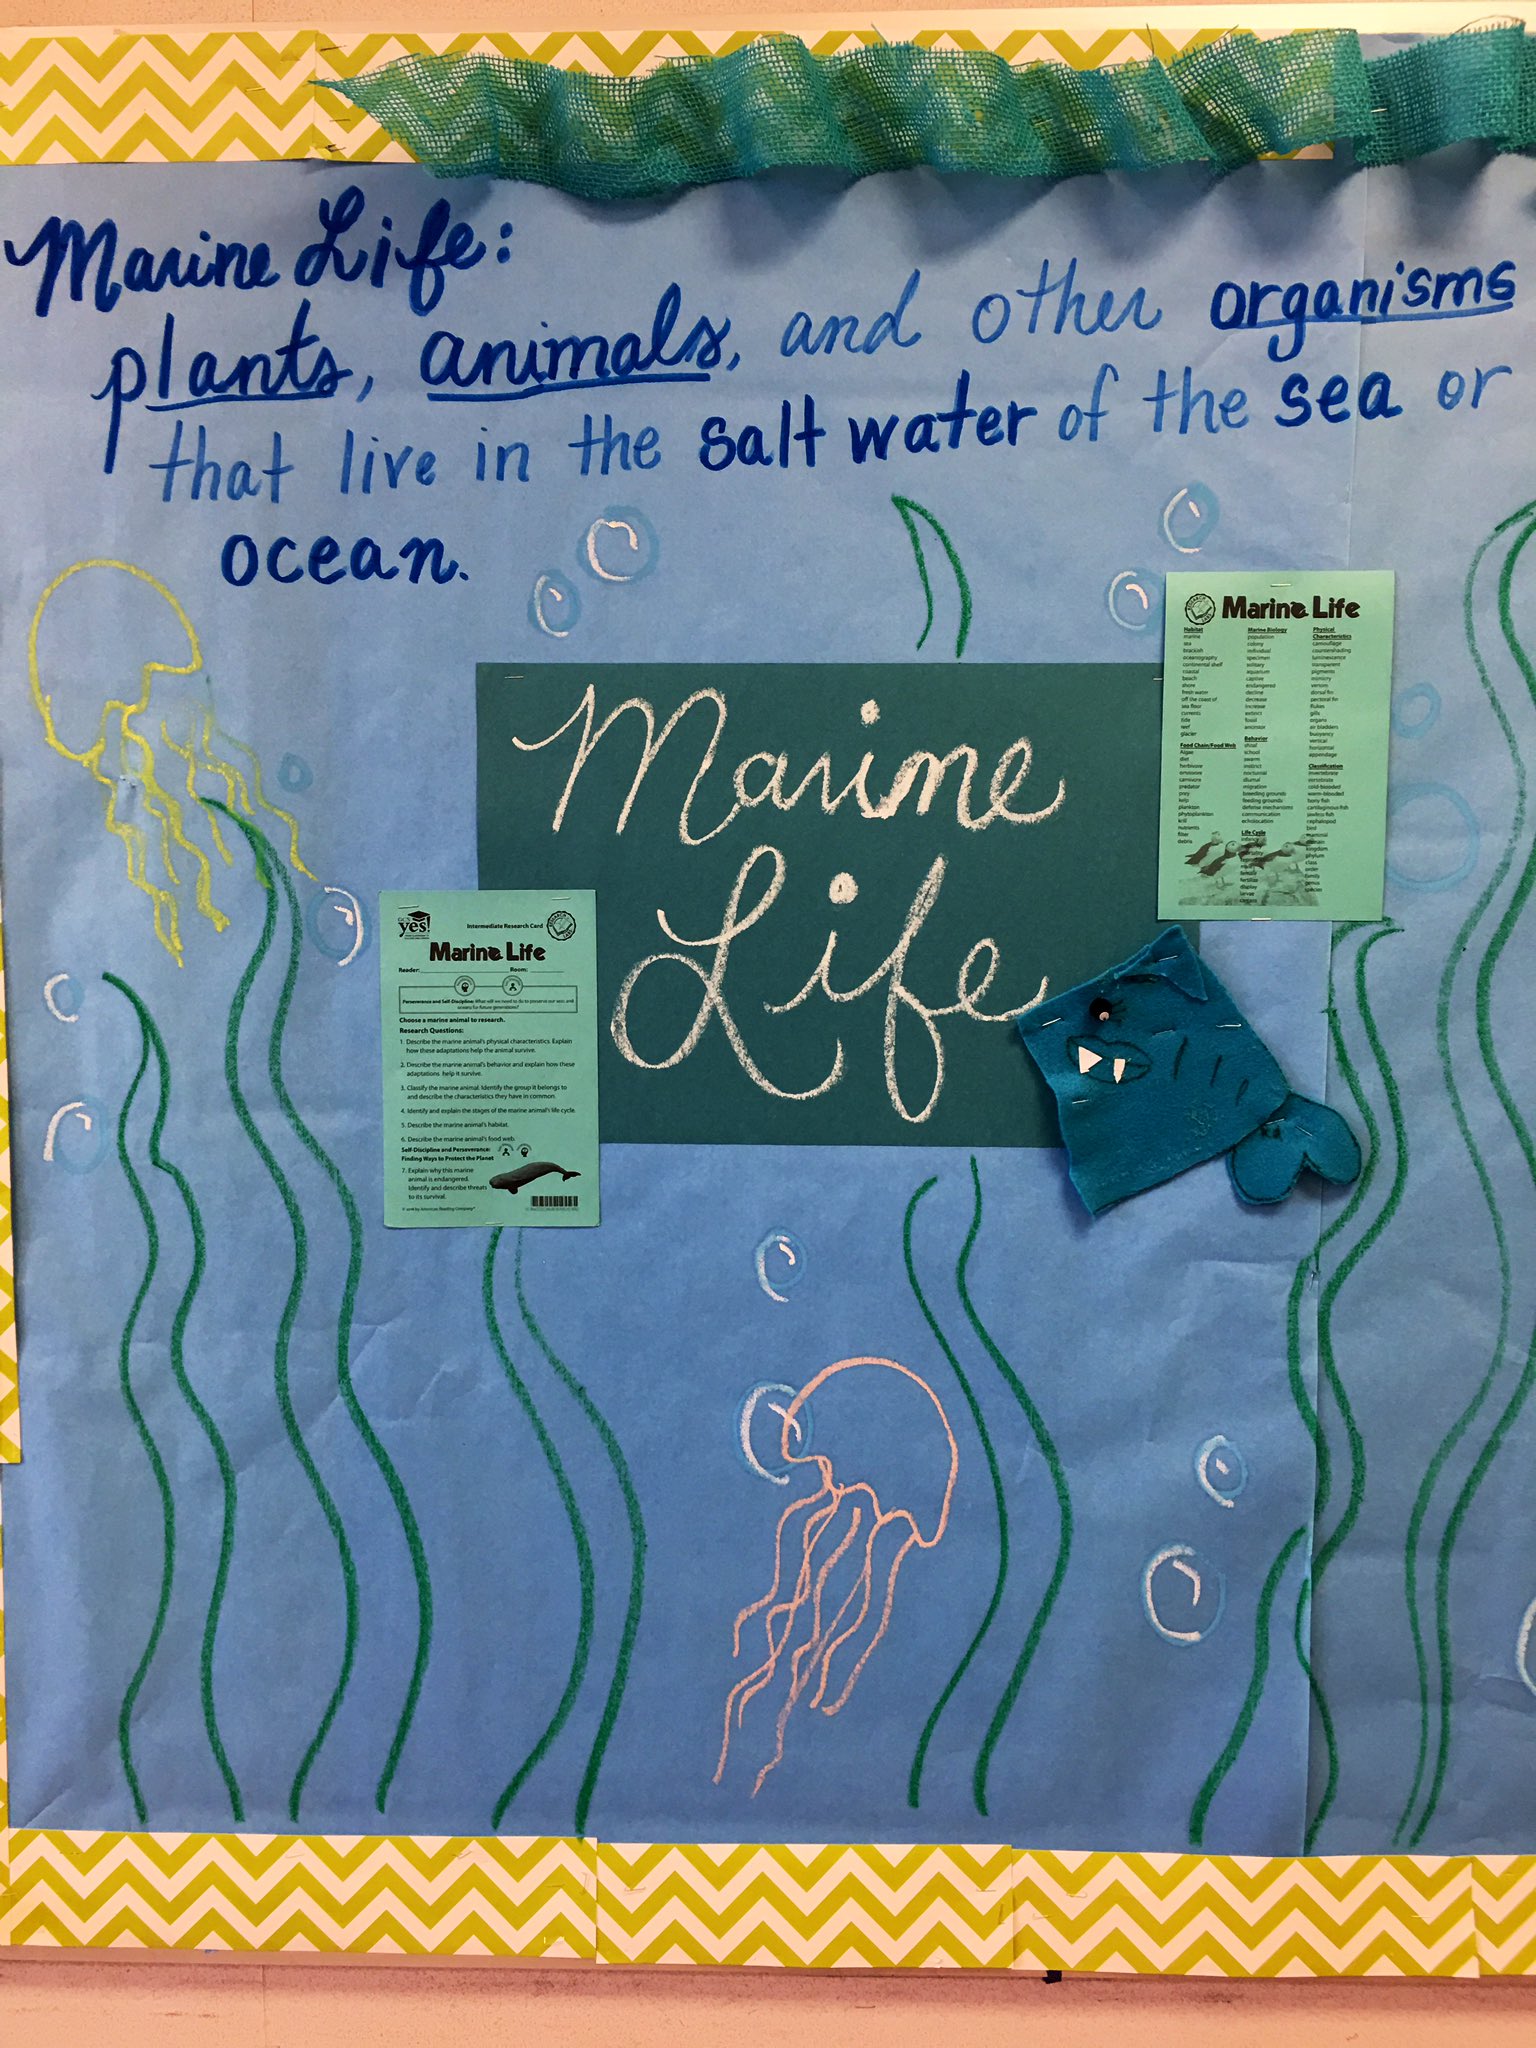 Marine Life:
plants, animals, and other organisms
that live in the salt water of the sea or
ocean.
Marine
Life
GCS
yes!
Intermediate Research Card
Marine Life
Reader:
Room:
Perseverance and Self-Discipline: What will we need to do to preserve our seas and
oceans for future generations?
Choose a marine animal to research.
Research Questions:
1. Describe the marine animal's physical characteristics. Explain
how these adaptations help the animal survive.
2. Describe the marine animal's behavior and explain how these
adaptations help it survive.
3. Classify the marine animal. Identify the group it belongs to
and describe the characteristics they have in common.
4. Identify and explain the stages of the marine animal's life cycle.
5. Describe the marine animal's habitat.
6. Describe the marine animal's food web.
Self-Discipline and Perseverance:
Finding Ways to Protect the Planet
7. Explain why this marine
animal is endangered.
Identify and describe threats
to its survival.
© 2016 by American Reading Company®
Marine Life
Habitat
marine
sea
brackish
oceanography
continental shelf
coastal
beach
shore
fresh water
off the coast of
sea floor
currents
tide
reef
glacier
Food Chain/Food Web
Algae
diet
herbivore
omnivore
carnivore
predator
prey
kelp
plankton
phytoplankton
krill
nutrients
filter
debris
Marine Biology
population
colony
individual
specimen
solitary
aquarium
captive
endangered
decline
decrease
increase
extinct
fossil
ancestor
Behavior
shoal
school
swarm
instinct
nocturnal
diurnal
migration
breeding grounds
feeding grounds
defense mechanisms
communication
echolocation
Life Cycle
infancy
female
fertilize
display
larvae
Physical
Characteristics
camouflage
countershading
luminescence
transparent
pigments
mimicry
venom
dorsal fin
pectoral fin
flukes
gills
organs
air bladders
buoyancy
vertical
horizontal
appendage
Classification
invertebrate
vertebrate
cold-blooded
warm-blooded
bony fish
cartilaginous fish
jawless fish
cephalopod
bird
mammal
domain
kingdom
phylum
class
order
family
genus
species